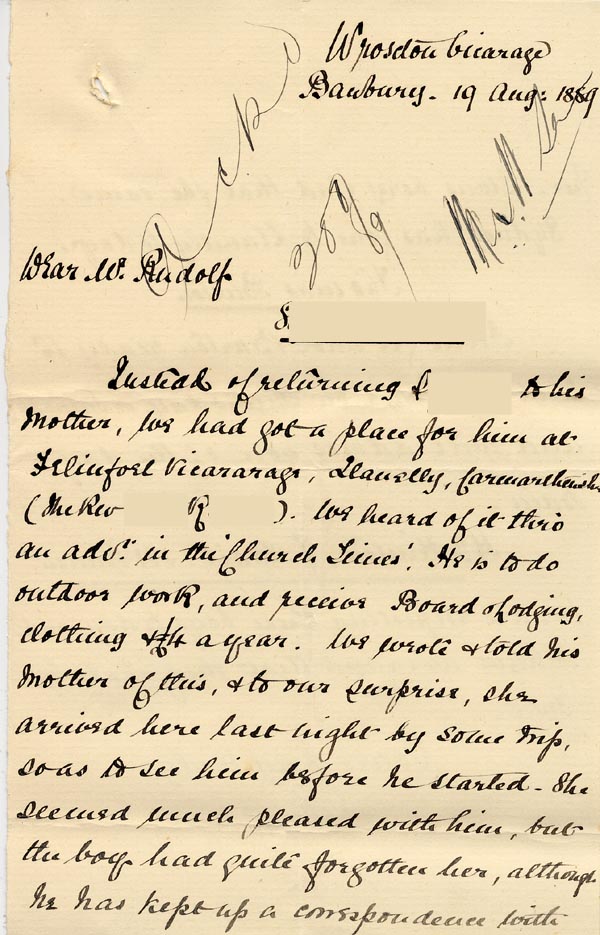 Wrosdon Vicarage
Banbury - 19 Aug: 1889
Ackd
20/8/89
Dear Mr. Rudolf
S
Instead of returning S to his
mother, we had got a place for him at
Felinfoel Vicararage, Llanelly, Carmarthensh
(The Rev R ). We heard of it thro
an advt. in the 'Church Times'. He is to do
outdoor work, and receive Board & Lodging,
clothing & £4 a year. We wrote & told his
mother of this, & to our surprise, she
arrived here last night by some trip,
so as to see him before he started - She
seemed much pleased with him, but
the boy had quite forgotten her, although
he has kept up a correspondence with